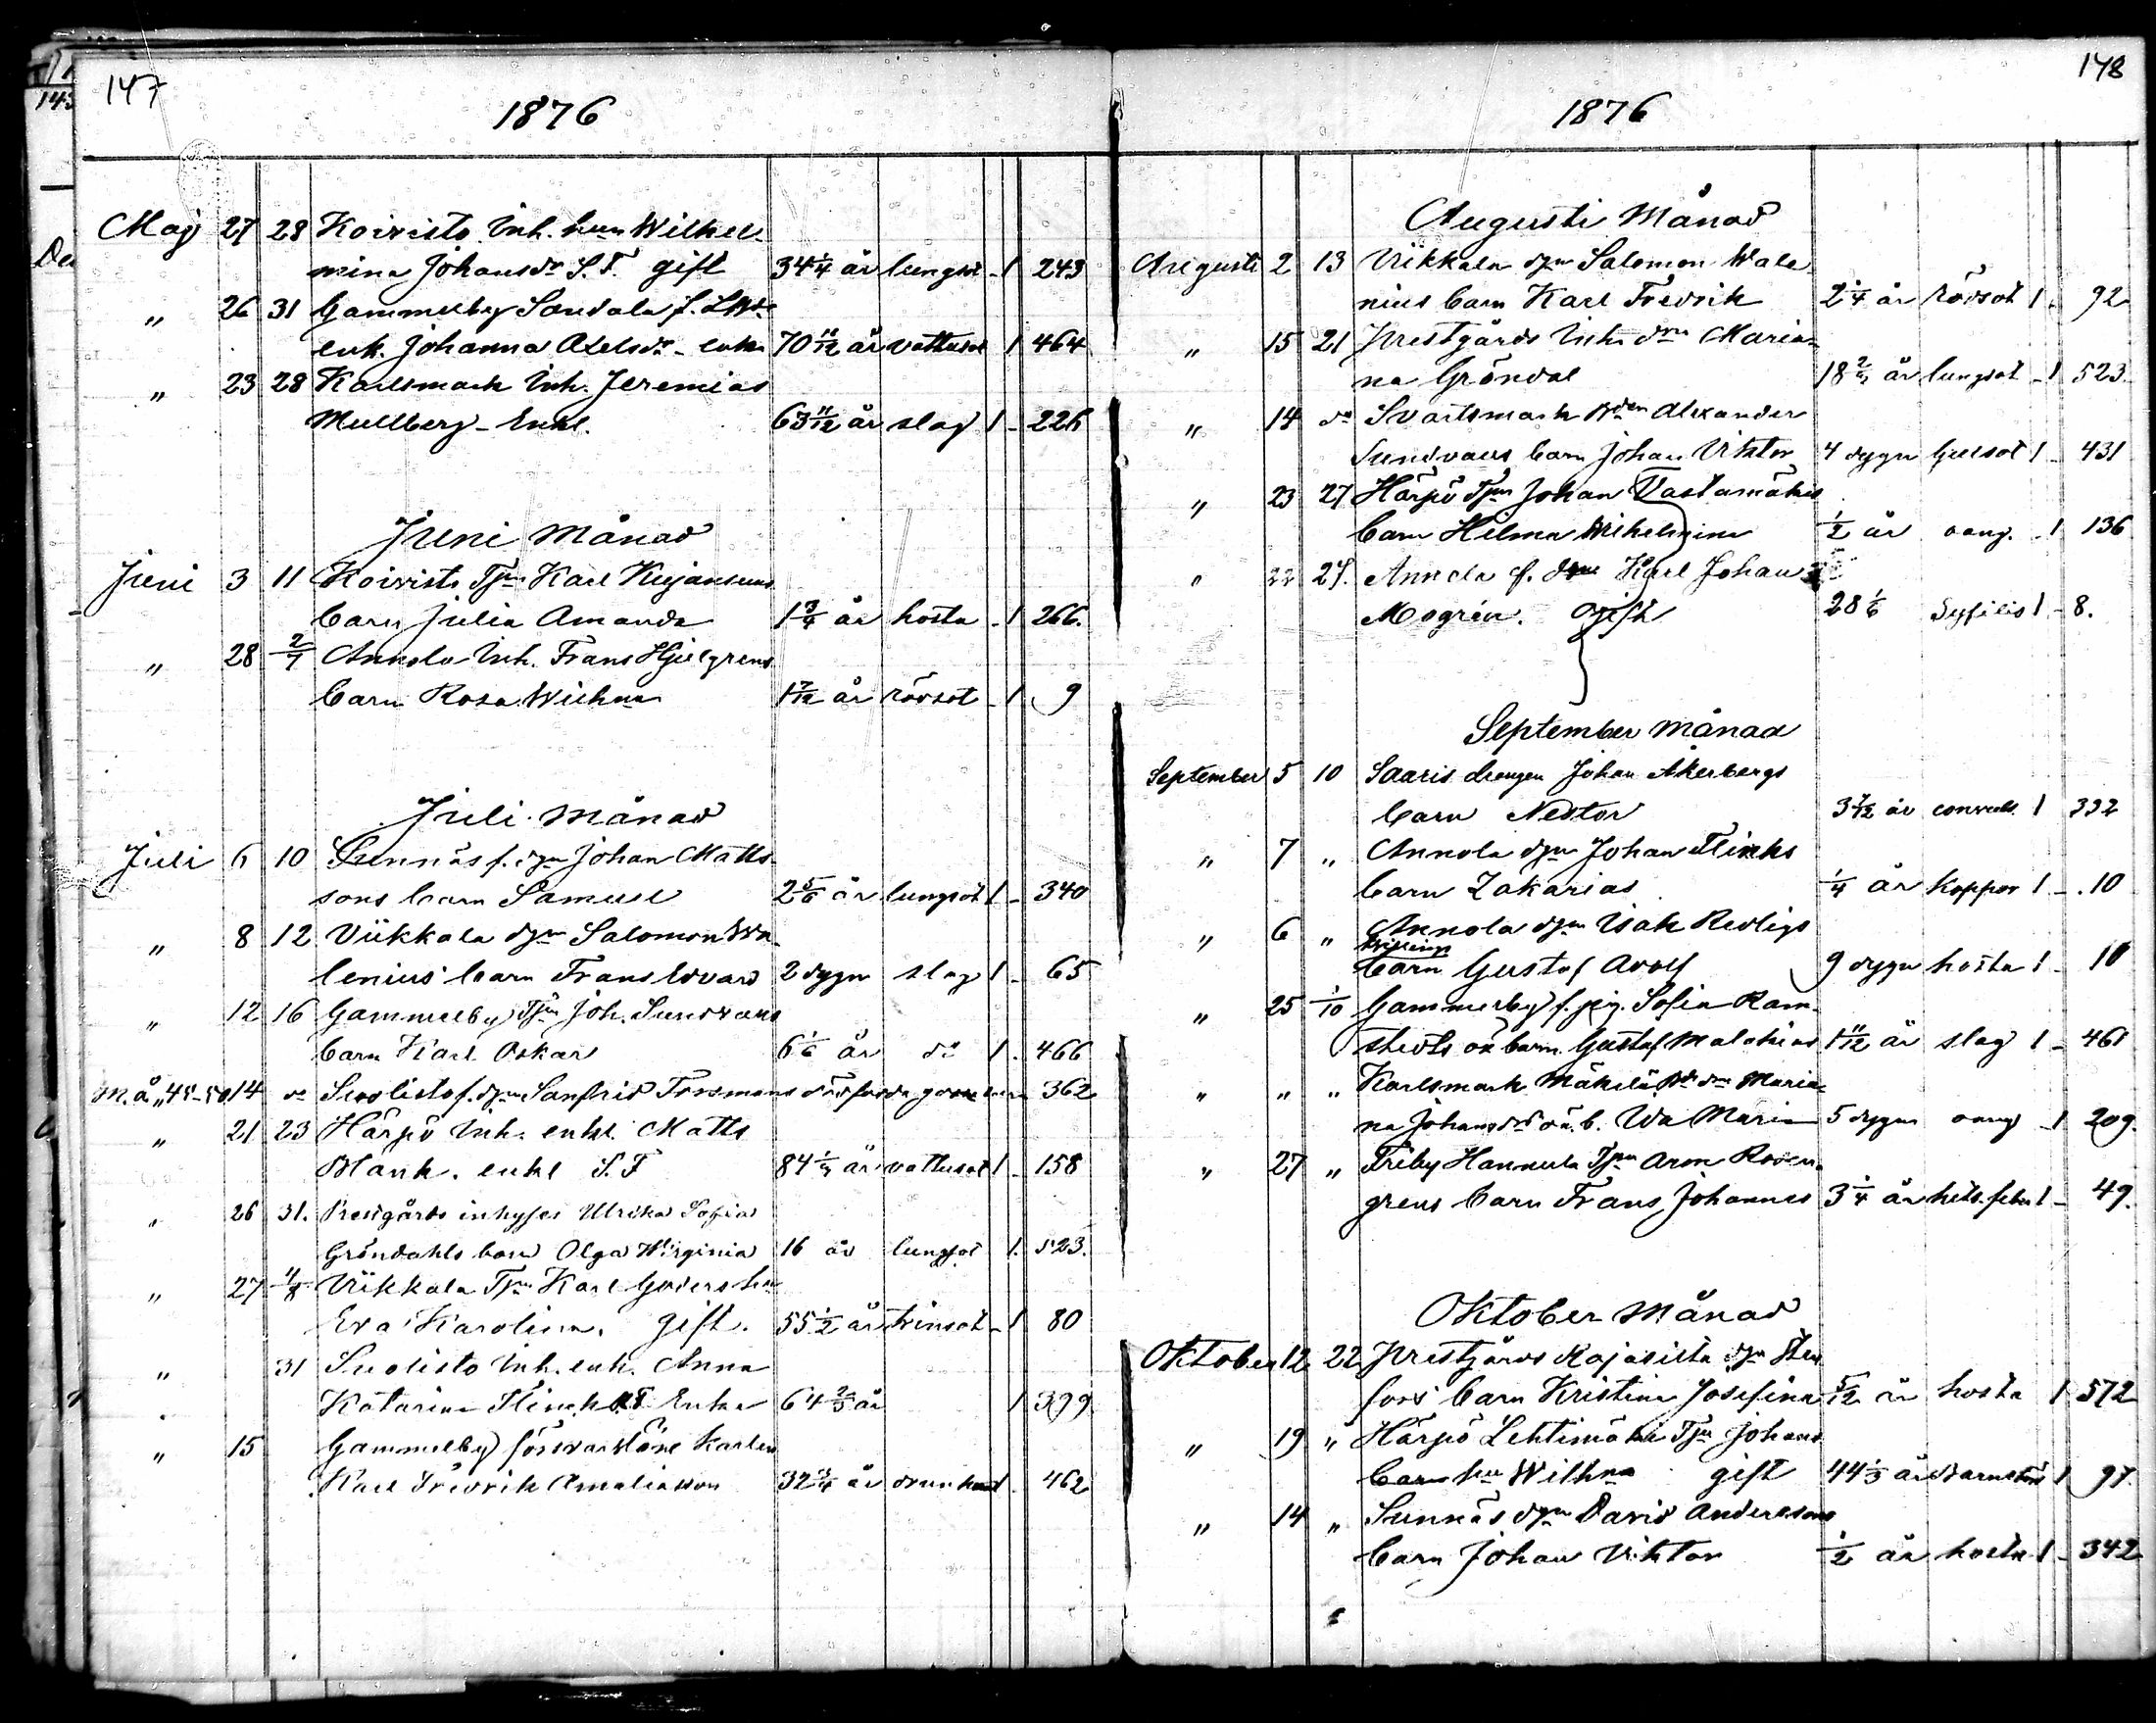 147
1876
Maj 27 28 Koivisto Inh. hun Wilhel-
mina Johansdr S.F. gift 34 1/4 år lungsot - 1 243
" 26 31 Gammelby Sandala f.
enk. Johanna Axelsdr - enka 70 11/12 år vattusot 1 464
" 23 28 Karlsmark Inh. Jeremias
Mullberg - Enkl. 63 11/12 år slag 1 - 226
Juni Månad
Juni 3 11 Koivisto Tjm Karl Kujansuus
barn Julia Amanda 1 3/4 år hosta - 1 266.
" 28 2/7 Annola Inh. Frans Hjelgrens
barn Rosa Wilhna 1 7/12 år rödsot - 1 9
Juli Månad
Juli 6 10 Sunnäs f. dgn Johan Matts-
sons barn Samuel 2 5/6 år lungsot 1 - 340
" 8 12 Viikkala dgn Salomon Wa-
lenius barn Frans Edvard 2 dygn slag 1 - 65
" 12 16 Gammelby Tjm Joh. Sundvans
barn Karl Oskar 6 1/6 år do 1. 466
M.å. 45-50 14 do Suolisto f. dgn Sanfrid Forsmans dödfödda gossebarn 362
" 21 23 Härpö Inh. enkl. Matts
Blank. enkl S.F 84 1/4 år vattusot 1 - 158
" 26 31. Prestgårds inhyses Ulrika Sofia
Gröndahls barn Olga Wirginia 16 år lungsot 1. 523.
" 27 1/8 Viikkala Tjm Karl hu
Eva Karolina. gift. 55 1/2 år tvinsot - 1 80
" 31 Suolisto Inh. enk. Anna
Katarina Flinck Enka 64 2/3 år 1 399
" 15 Gammelby försvarslöse karlen
Karl Fredrik Amaliasson 32 3/4 år drunknad 1. 462
148
1876
Augusti Månad
Augusti 2 13 Viikkala dgn Salomon Wale-
nius barn Karl Fredrik 2 1/4 år rödsot 1. 92
" 15 21 Prestgårds Inh. dna Maria-
na Gröndal 18 år lungsot - 1 523.
" 14 do Svartsmark Alexander
Sundvans barn Johan Viktor 4 dygn gulsot 1 - 431
" 23 27 Härpö Tjm Johan Tastamäkis
barn Hilma Wilhelmina 1/2 år oang. - 1 136
" 22 27. Annola f. Karl Johan
Mogrén. ogift 28 1/6 Syfilis 1 - 8.
September månad
September 5 10 Saaris drengen Johan Åkerbergs
barn Nestor 3 7/12 år convuls. 1 332
" 7 " Annola dgn Johan Flinks
barn Zakarias 1/4 år koppor 1 - . 10
" 6 " Annola dgn Isak Redligs
tvilling
barn Gustaf Adolf 9 dygn hosta 1 - 10
" 25 1/10 Gammelby f. pig. Sofia Ram-
stedts oä barn Gustaf Malakias 1 11/12 år slag 1 - 461
" " " Karlsmark Mäkelä Maria-
na Johansdrs oä. b. Ida Maria 5 dygn oang - 1 209.
" 27 " Friby Hannula Tjm Arm Rosen-
grens barn Frans Johannes 3 1/4 år hets. feber 1 - 49.
Oktober Månad
Oktober 12 22 Prestgårds Rajasilta dgn Sten-
fors' barn Kristina Josefina 5/12 år hosta 1 572
" 19 " Härpö Lehtimäki Tjm Johans
hu Wilhna gift 44 1/3 år barnsbörd 1 97.
" 14 " Sunnäs dgn David Anderssons
barn Johan Viktor 1/2 år hosta 1 - 342